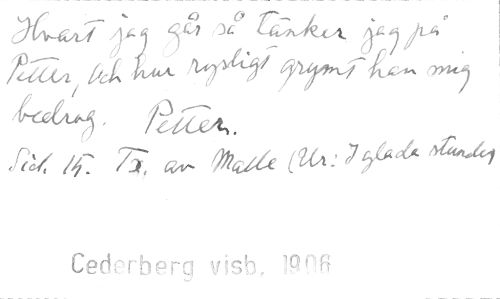 Hvart jag går så tänker jag på
Petter, och hur rysligt grymt han mig
bedrog. Petter.
Sid. 15. Tx. av Malle (Ur: I glada stunder
Cederberg visb. 1906